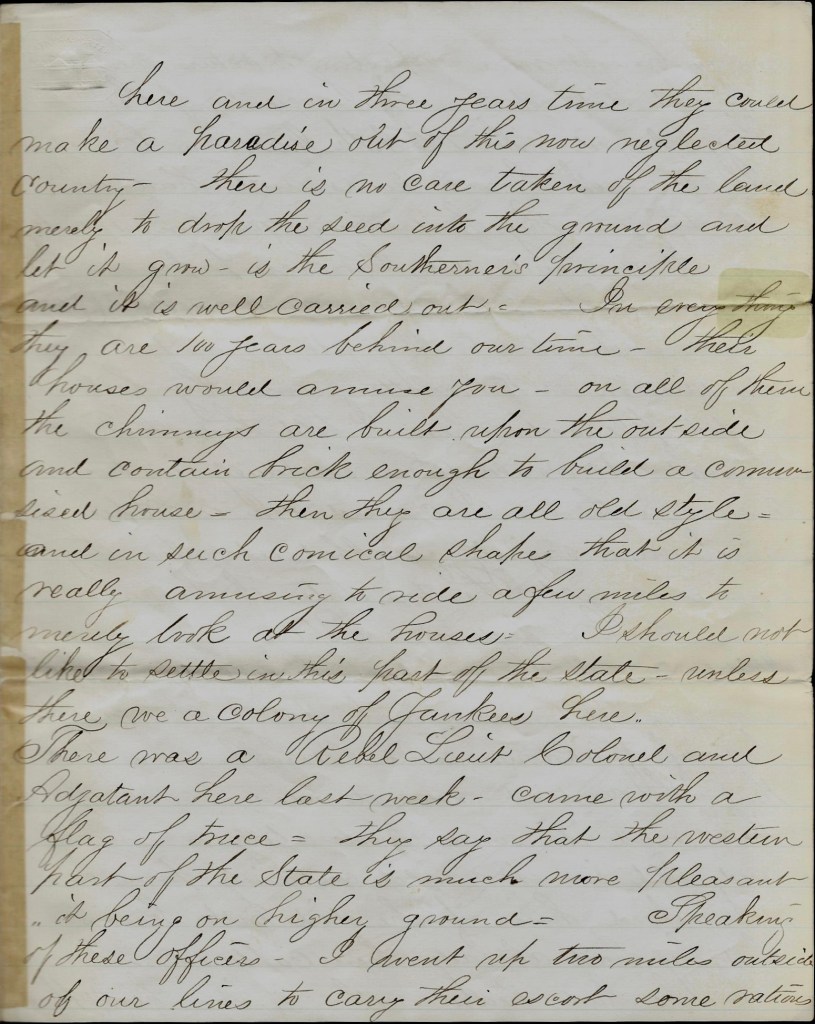 here and in three years time they could
make a paradise out of this now neglected
country - there is no care taken of the land
merely to drop the seed into the ground and
let it grow - is the Southerner's principle
and it is well carried out = In every thing
they are 100 years behind our time - their
houses would amuse you - on all of them
the chimneys are built upon the outside
and contain brick enough to build a common
sised house = then they are all old style =
and in such comical shape that it is
really amusing to ride a few miles to
merely look at the houses = I should not
like to settle in this part of the state - unless
there we a colony of Yankees here..
There was a Rebel Lieut Colonel and
Adjatant here last week - came with a
flag of truce = they say that the western
part of the State is much more pleasant
.. it being on higher ground = Speaking
of these officers - I went up two miles outside
of our lines to carry their escort some rations